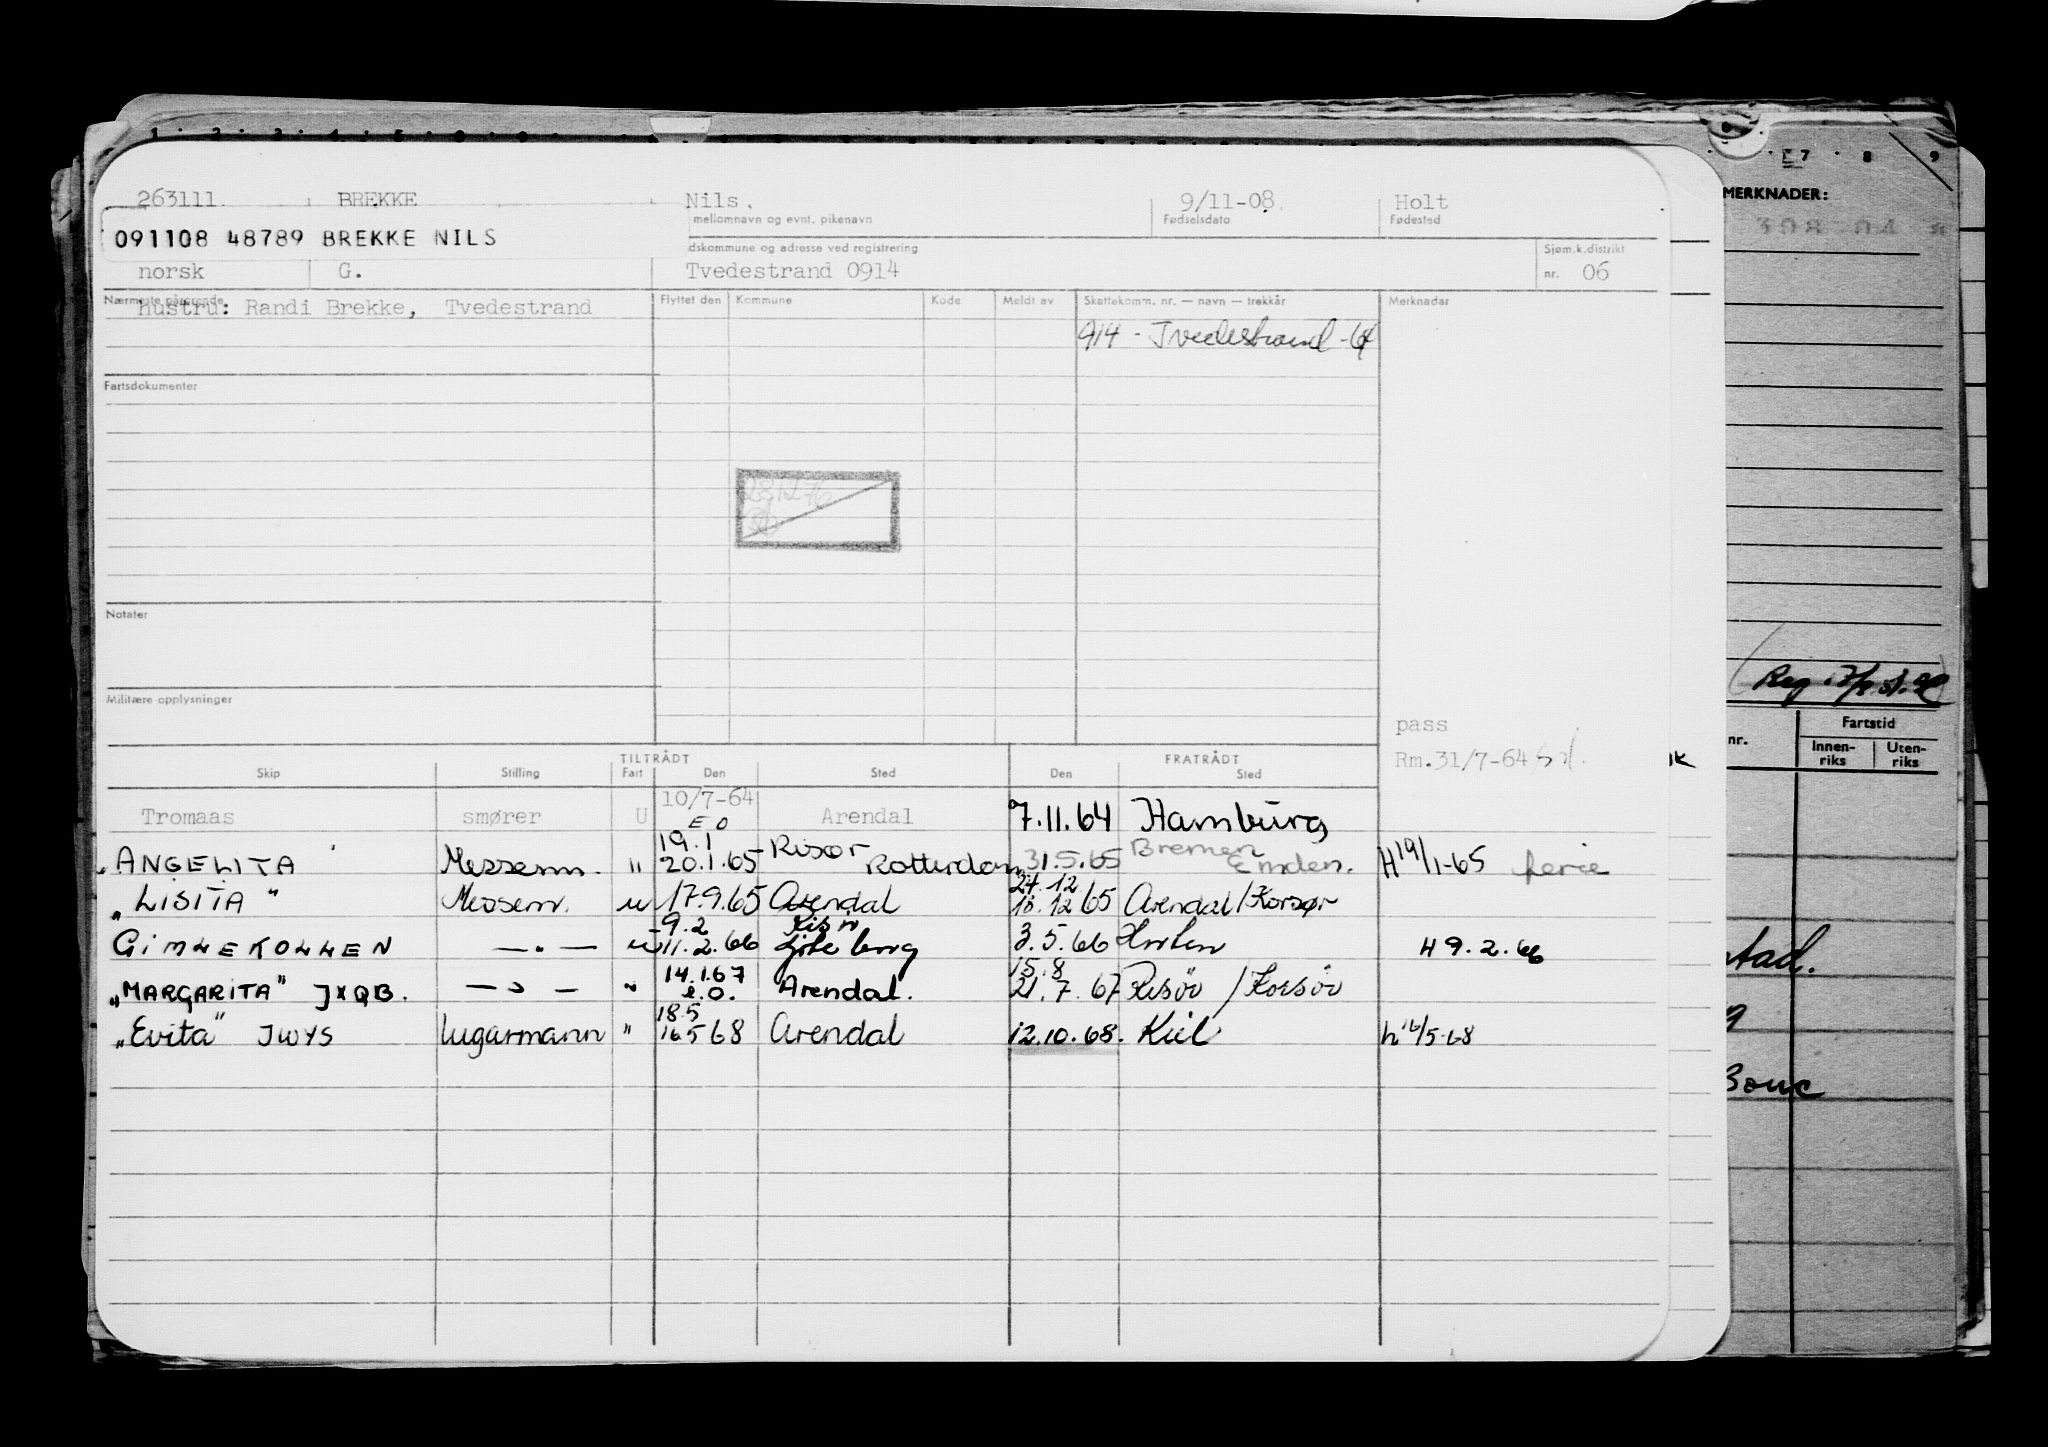 1 · 2 · 3 · 4 ·
7 · 8 9
MERKNADER:
263111 BREKKE Nils. 9/11-08. Holt
mellomnavn og evnt. pikenavn Fødselsdato Fødested
091108 48789 BREKKE NILS
dskommune og adresse ved registrering Sjøm.k.distrikt
norsk G. Tvedestrand 0914 nr. 06
Nærmeste pårørende Flyttet den Kommune Kode Meldt av Skattekomm. nr. — navn — trekkår Merknader
hustru: Randi Brekke, Tvedestrand
914 - Tvedestrand - 64
Fartsdokumenter
Notater
Militære opplysninger
pass
Rm.31/7-64
TILTRÅDT FRATRÅDT
Skip Stilling Fart Den Sted Den Sted
10/7-64
Tromaas smører U E O Arendal 7.11.64 Hamburg
19.1 Risør Bremen
"ANGELITA Messem. " 20.1.65 Rotterdam 31.5.65 Emden. H 19/1-65 ferie
24.12
"LISITA" Messem. u 17.9.65 Arendal 18.12 65 Arendal/Korsør
9.2 Risør
GIMLEKOLLEN — " — u 11.2.66 Göteborg 3.5.66 Horten H 9.2.66
14.1.67 15.8
"MARGARITA" JXQB. — " — " e.o. Arendal. 21.7.67 Risör / Korsör
18.5
"Evita" JWYS Lugarmann " 16.5 68 Arendal 12.10.68. Kiel h 16/5-68
Fartstid
nr. Innen-
riks Uten-
riks
Bouc